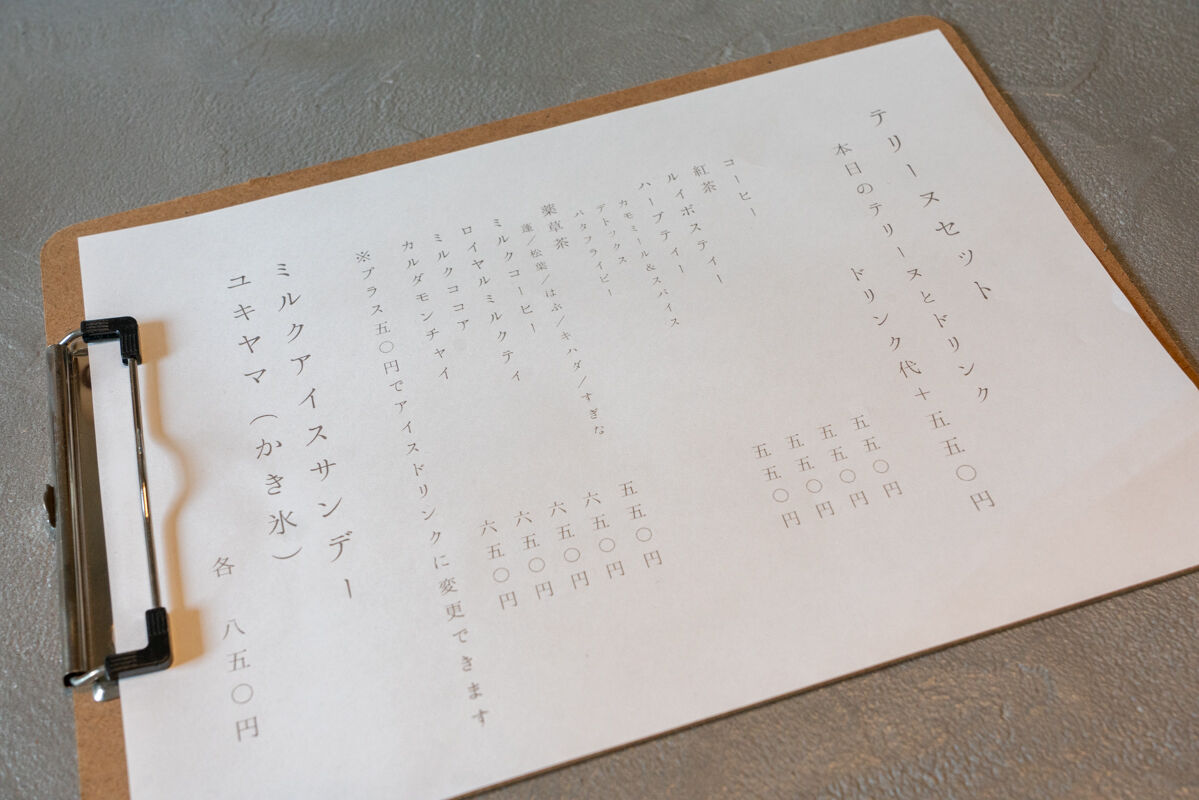 テリーヌセット
本日のテリーヌとドリンク
ドリンク代+五五〇円
コーヒー 五五〇円
紅茶 五五〇円
ルイボスティー 五五〇円
ハーブティー 五五〇円
カモミール&スパイス
デトックス
バタフライピー
薬草茶 五五〇円
蓬/松葉/はぶ/キハダ/すぎな
ミルクコーヒー 六五〇円
ロイヤルミルクティ 六五〇円
ミルクココア 六五〇円
カルダモンチャイ 六五〇円
※プラス五〇円でアイスドリンクに変更できます
ミルクアイスサンデー
ユキヤマ(かき氷)
各 八五〇円